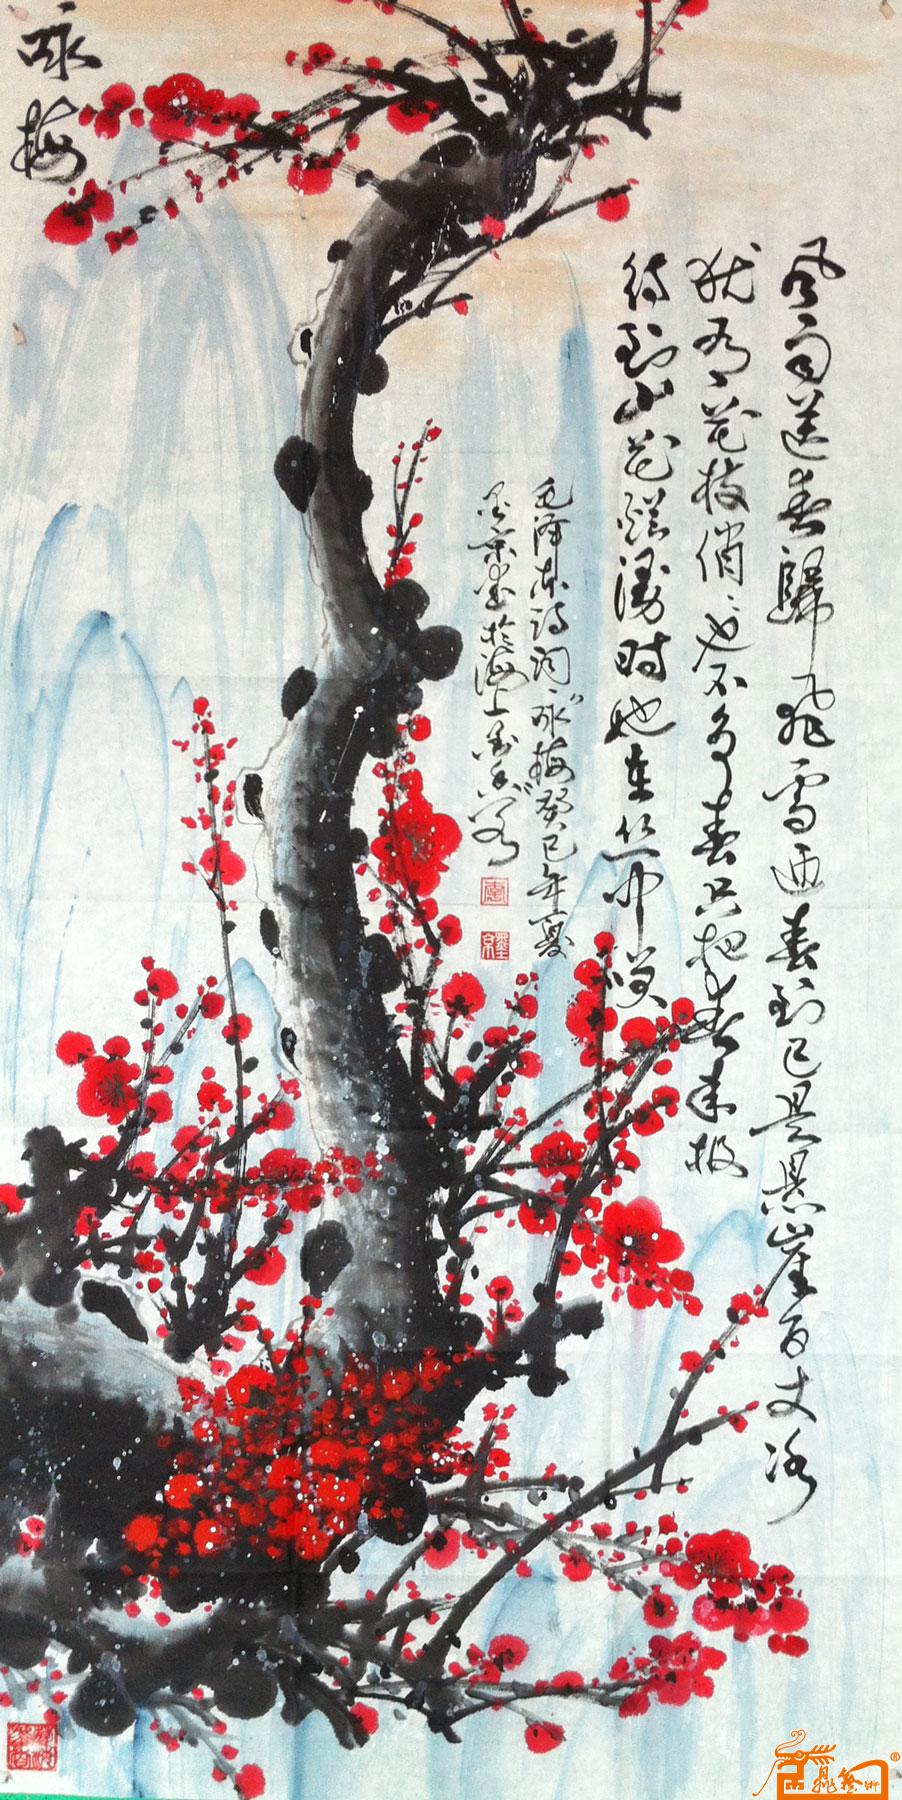 咏梅
风雨送春歸飛雪迎春到已是悬崖百丈冰
犹有花枝俏俏也不争春只把春来报
待到山花烂漫时她在丛中笑
毛泽东诗词"咏梅"癸巳年夏
墨京书於海上
墨京